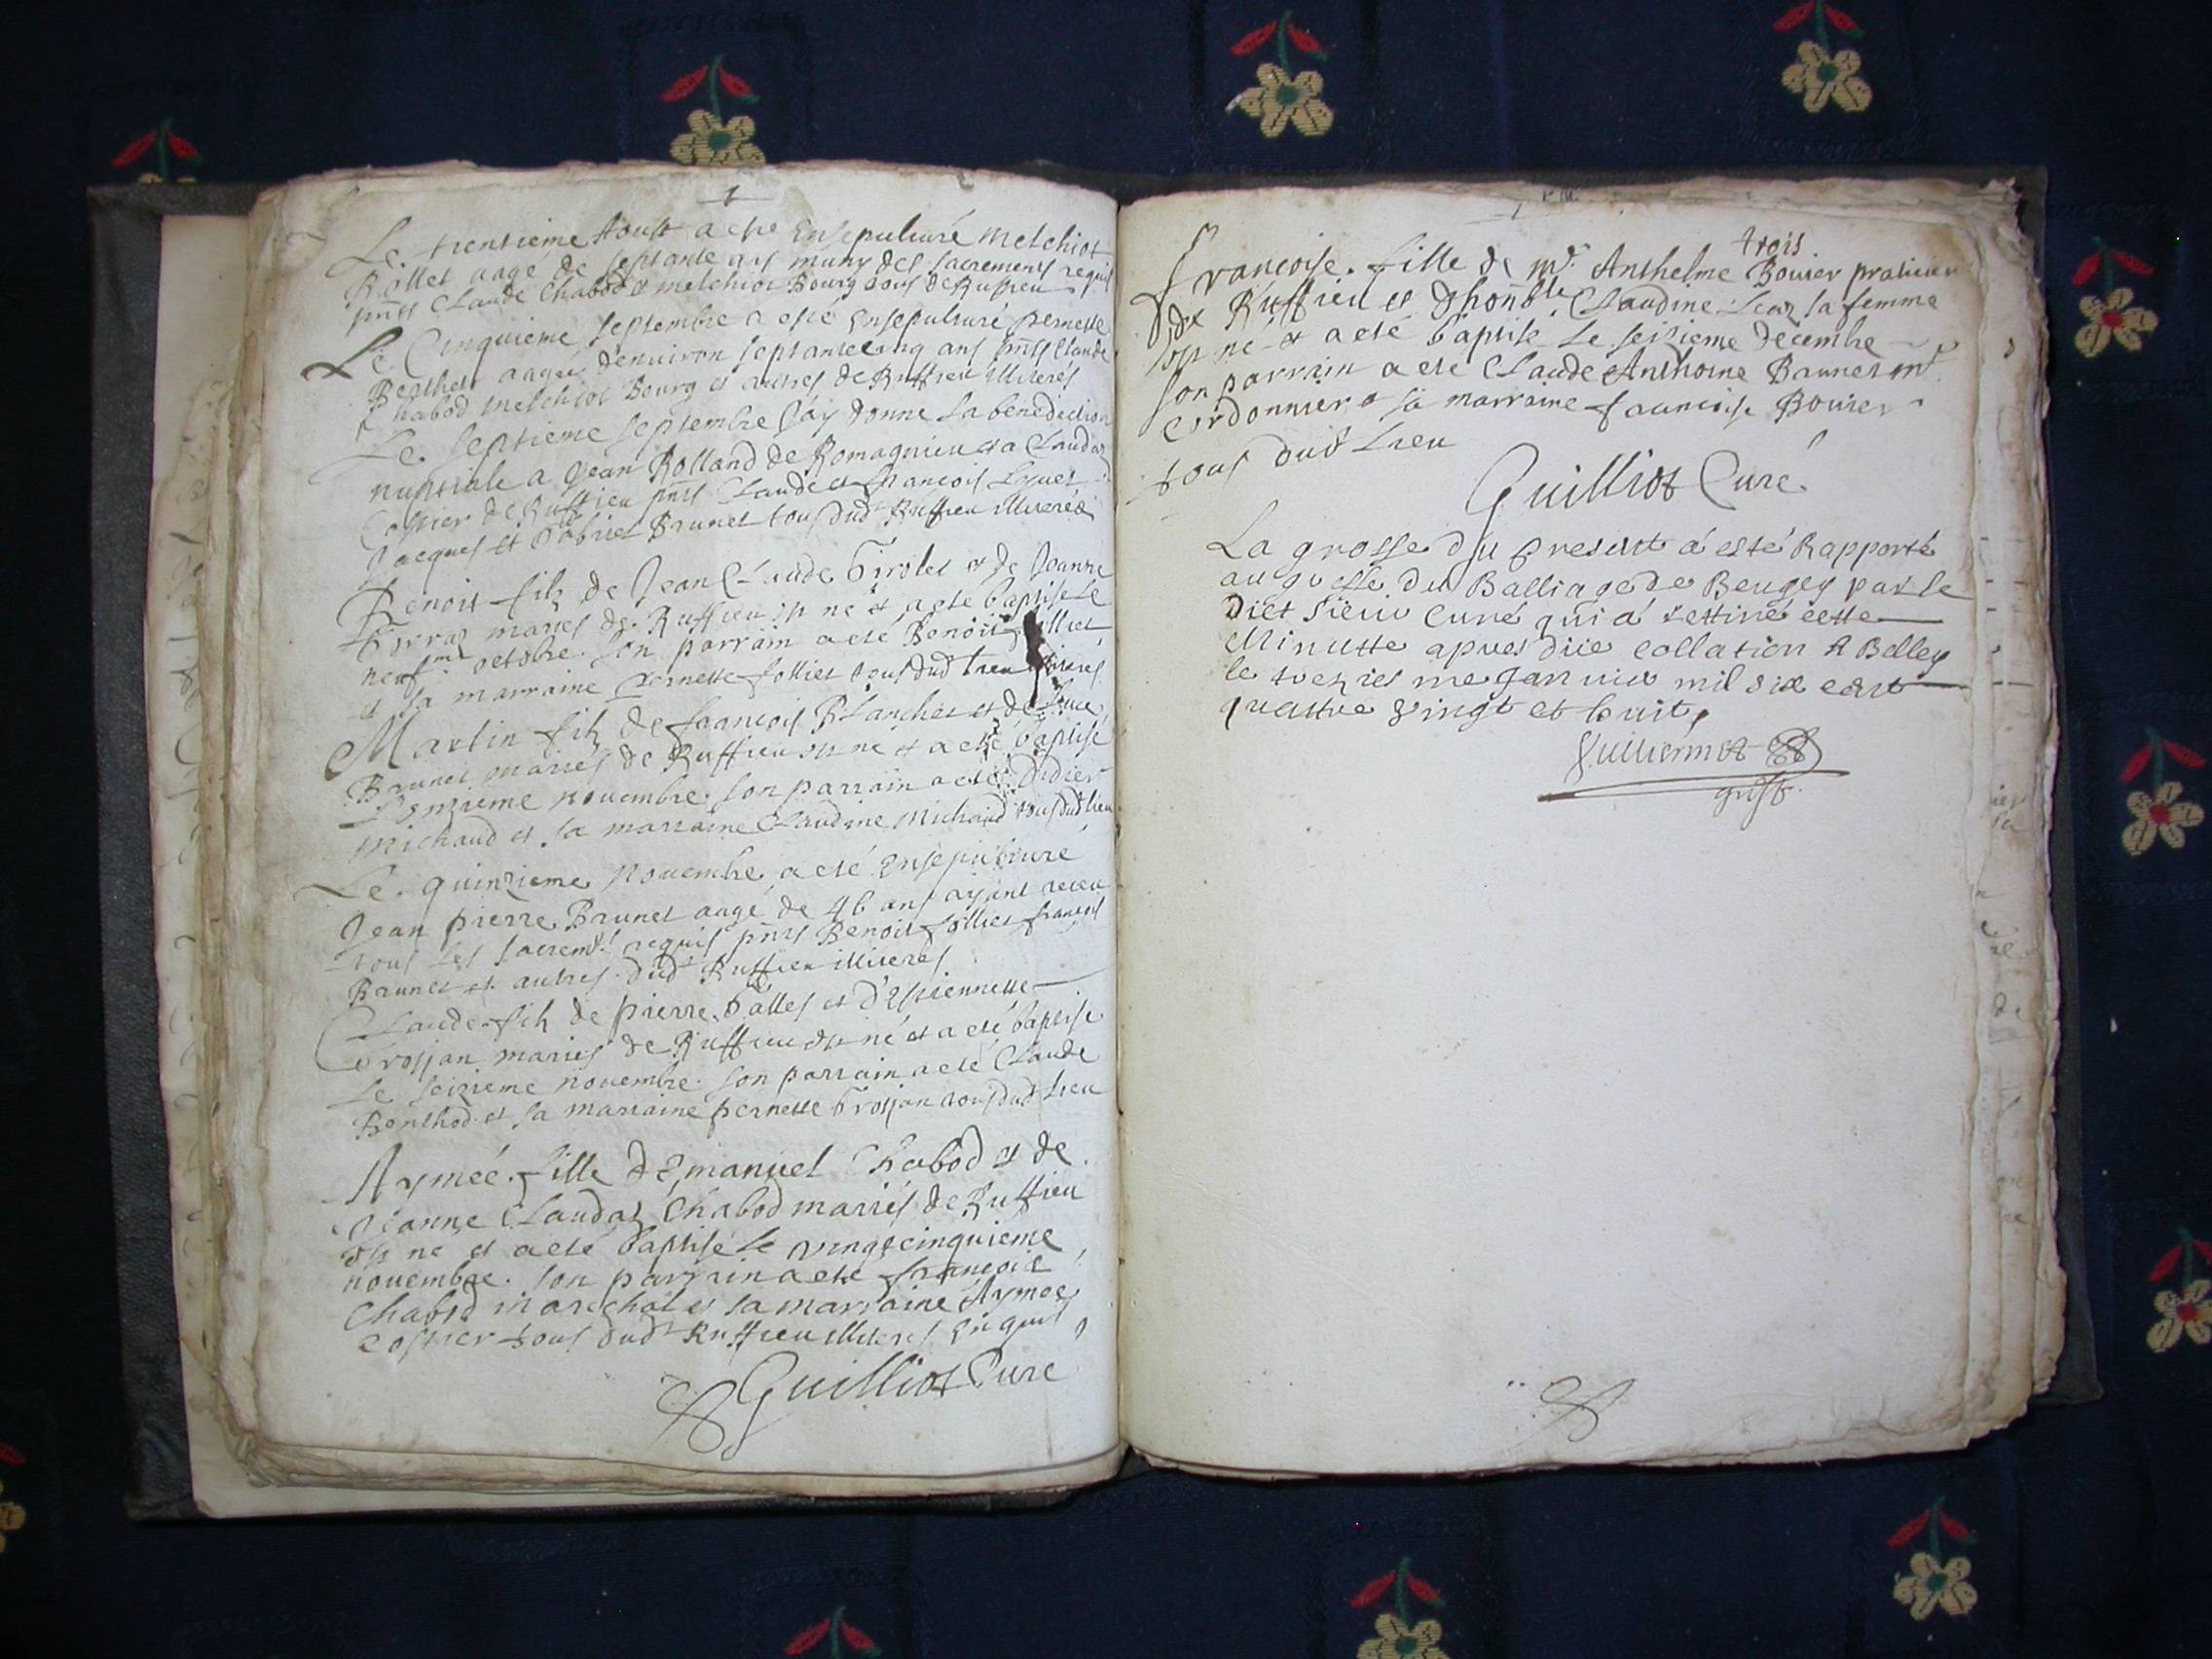 Le trentieme Aoust a este Ensepulturé melchiot
Rollet aagé de septante ans muny des sacrements requis
pnts Claude Chabod & melchiot Bourg tous de Ruffieu
Le Cinquieme septembre a esté Ensepulturé pernette
Berthet aagée denuiron septantecinq ans pnts Claude
Chabod melchiot Bourg et autres de Ruffieu illiterés
Le septieme septembre J'ay donne la benediction
nuptiale a Jean Rolland de Romagnieu et a Claudaz
Costier de Ruffieu pnts Claude et francois
Jacques et Gabriel Brunet tous dudt Ruffieu illiterés
Benoit fils de Jean Claude Girolet et de Jeanne
maries de Ruffieu est né et a esté baptisé le
neufme octobre. son parrain a eté Benoit folliet
et sa marraine pernette folliet tous dud lieu illiterés
Martin fils de francois Blanchet et de
Brunet mariés de Ruffieu est né et a eté baptisé
novembre. son parrain a eté Didier
michaud et sa marraine Claudine Michaud tous dud lieu
Le quinzieme novembre a eté Ensepulturé
Jean pierre Brunet aagé de 46 ans ayant receu
tous les sacremts requis pnts Benoit folliet francois
Brunet et autres dudt Ruffieu illiteres
Claude fils de pierre Galles et d'Estiennette
Grosjan mariés de Ruffieu est né et a eté baptisé
le seizieme novembre. son parrain a eté Claude
Berthod et sa marraine pernette Grosjan tous dud lieu
Aymée fille d'Emanuel Chabod et de
Jeanne Claudaz Chabod mariés de Ruffieu
est né et a eté baptisé le vingtcinquieme
novembre. son parrain a eté francois
Chabod marechal et sa marraine Aymee
Costier tous dudt Ruffieu illiteres Enquis
Guilliot Curé
trois
francoise fille de mr Anthelme Bouier praticien
de Ruffieu et d'honnble Claudine sa femme
est né et a eté baptisé le seizieme decembre
son parrain a eté Claude Anthoine Brunet mr
cordonnier & sa marraine francoise Bouier
tous dudt lieu
Guilliot Curé
La grosse du present a esté Rapporté
au greffe du Balliage de Beugey par le
Dict Sieur Curé qui a rettiré cette
Minutte apres dûe collation A Belley
le janvier mil six cent
quattre vingt et huit,
Guilliermet
greff.